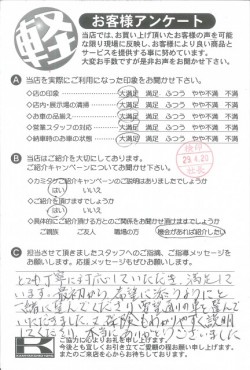 軽
お客様アンケート
当店では、お買い上げ頂いたお客様の声を可能
な限り現場に反映し、お客様により良い商品と
サービスを提供する事に努めています。
大変お手数ですが是非お声をお聞かせ下さい。
A 当店を実際にご利用になった印象をお聞かせ下さい。
◇店の印象 大満足 満足 ふつう やや不満 不満
◇店内・展示場の清掃 大満足 満足 ふつう やや不満 不満
◇お車の品揃え 大満足 満足 ふつう やや不満 不満
◇営業スタッフの対応 大満足 満足 ふつう やや不満 不満
◇納車時のお車の状態 大満足 満足 ふつう やや不満 不満
B 当店はご紹介を大切にしております。
ご紹介キャンペーンについてお聞かせ下さい。
◇カミタケご紹介キャンペーンのご説明はありましたでしょうか
はい いいえ
◇ご紹介を頂けますでしょうか
はい いいえ
◇具体的にご紹介頂ける方とのご関係をお聞かせ頂けますでしょうか
ご親族 ご友人 職場の方 機会があれば紹介したい
29.4.20
C 担当させて頂きましたスタッフへのご指摘、ご指導メッセージを
お願いします。応援メッセージもぜひお願いします。
とても丁寧に対応していただき、満足して
います。最初から希望に添うようにと
一緒に選んでくださり希望通りの車を選んで
いただきました。又、保険もわかりやすく説明
してくださり、本当にありがとうございました
ご協力に心よりお礼を申し上げます。
今後とも宜しくお引き立てご愛顧の程お願い申し上げます。
またのご来店を心からお待ちしております。